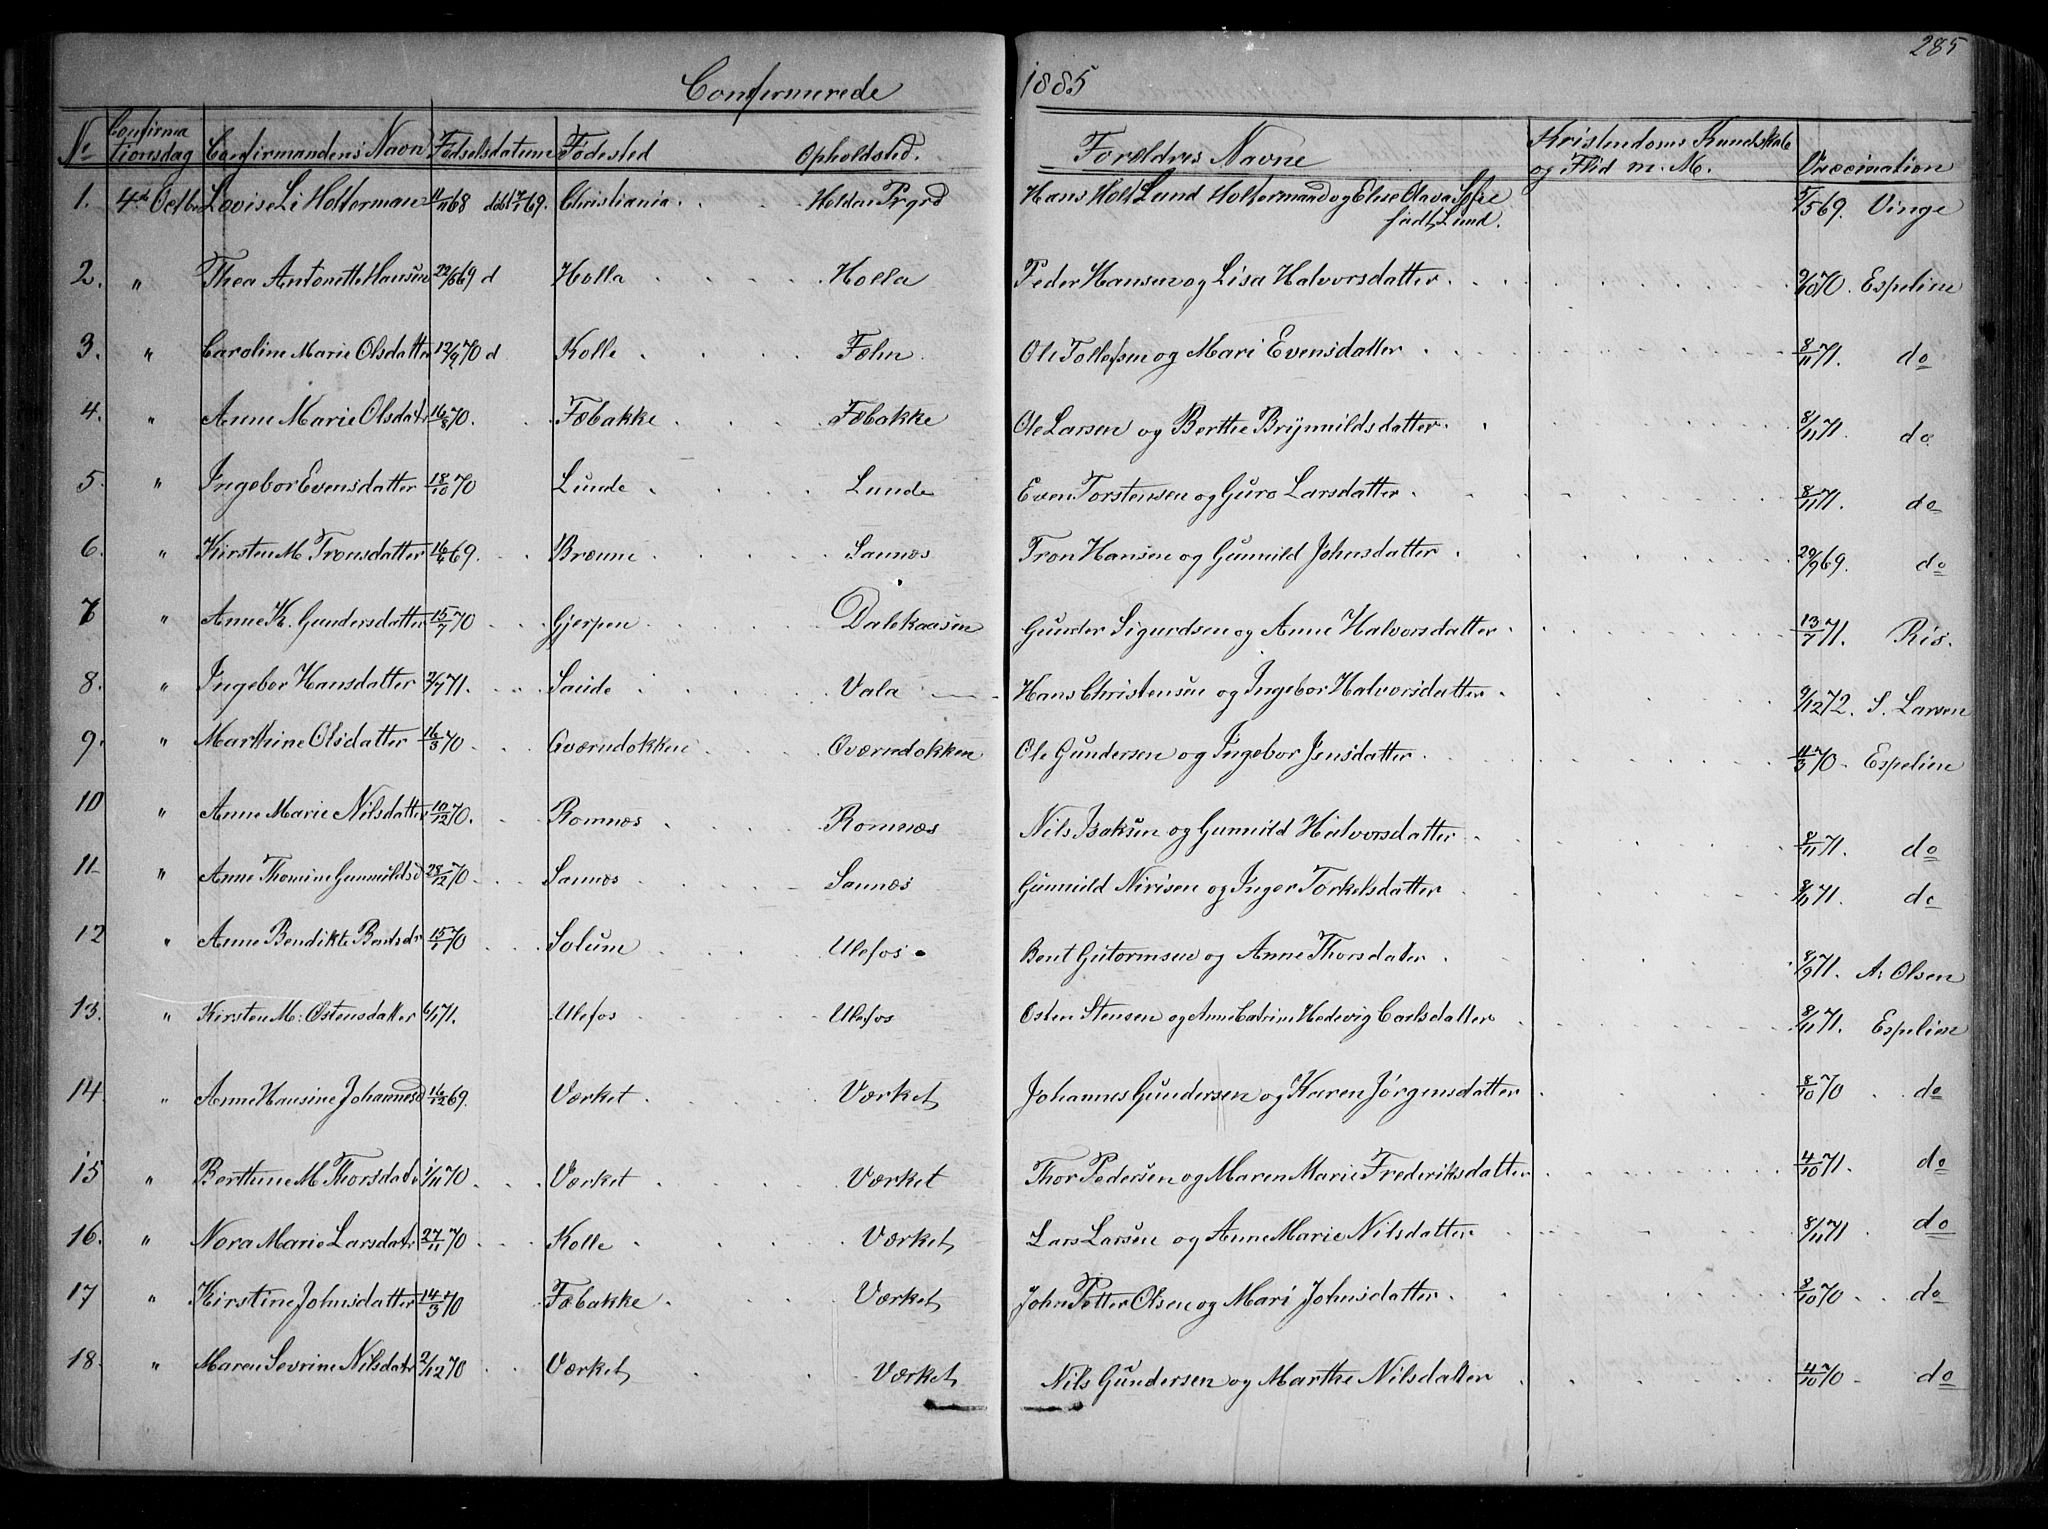 285
Confirmerede 1885
No Confirmationsdag Confirmandens Navn Fødselsdatum Fødested Opholdsted. Forældres Navne Kristendoms Kundskab og Flid m. M. Vaccination
1. 4de Octbr Lovise Li Holterman 11/11 68 døbt 17/1 69. Christiania. Holden Prgrd Hans Holt Lund Holtermand og Elise Olava Sofie født Lund. 5/5 69. Vinge
2. " Thea Antonette Hansen 22/6 69 d Holla Holla Peder Hansen og Lisa Halvorsdatter. 9/10 70. Espelien
3. " Caroline Marie Olsdatter 12/9 70 d Kolle Fæhn. Ole Tollefsen og Mari Evensdatter 8/11 71. do
4. " Anne Marie Olsdatr 16/8 70. Fæbakke Fæbakke Ole Larsen og Berthe Brynnildsdatter. 8/11 71. do
5. " Ingebor Evensdatter 18/10 70 Lunde Lunde Even Torstensen og Guro Larsdatter. 8/11 71. do
6. " Kirsten M. Tronsdatter 16/4 69. Brenne Sannes Tron Hansen og Gunnild Johnsdatter 20/9 69. do
7 " Anne K. Gundersdatter 15/7 70 Gjerpen Dalekaasen Gunder Sigurdsen og Anne Halvorsdatter 13/7 71. Ris.
8. " Ingebor Hansdatter 2/7 71. Saude Vala Hans Christensen og Ingebor Halvorsdatter 9/12 72. S. Larsen
9. " Marthine Olsdatter 16/3 70 Qværndokken Qværndokken Ole Gundersen og Ingebor Jensdatter 4/3 70 Espelien
10 " Anne Marie Nilsdatter 10/12 70. Romnæs Romnæs Nils Isaksen og Gunnild Halvorsdatter 8/11 71. do
11 " Anne Thomine Gunnuldsd 28/12 70 Sannæs Sannæs Gunnuld Nirisen og Inger Torkelsdatter 8/11 71. do
12 " Anne Bendikte Bentsdr 15/1 70 Solum Ulefos Bent Gutormsen og Anne Thorsdater 8/9 71. A. Olsen
13. " Kirsten M: Østensdatter 6/1 71. Ulefos Ulefos Østen Stensen og Anne Catrine Hedevig Carlsdatter 8/11 71. Espelien
14 " Anne Hansine Johannesd 16/12 69. Værket Værket Johannes Gundersen og Karen Jørgensdatter 8/10 70 do
15 " Berthine M. Thorsdatr 1/11 70 Værket Værket Thor Pedersen og Maren Marie Frederiksdatter 4/10 71. do
16. " Nora Marie Larsdatr 27/11 70 Kolle Værket Lars Larsen og Anne Marie Nilsdatter 8/11 71 do
17 " Kirstine Johnsdatter 14/3 70 Fæbakke Værket John Petter Olsen og Mari Johnsdatter 8/10 70 do
18. " Maren Sevrine Nilsdatr 2/12 70 Værket Værket Nils Gundersen og Marthe Nilsdatter 4/10 70 do